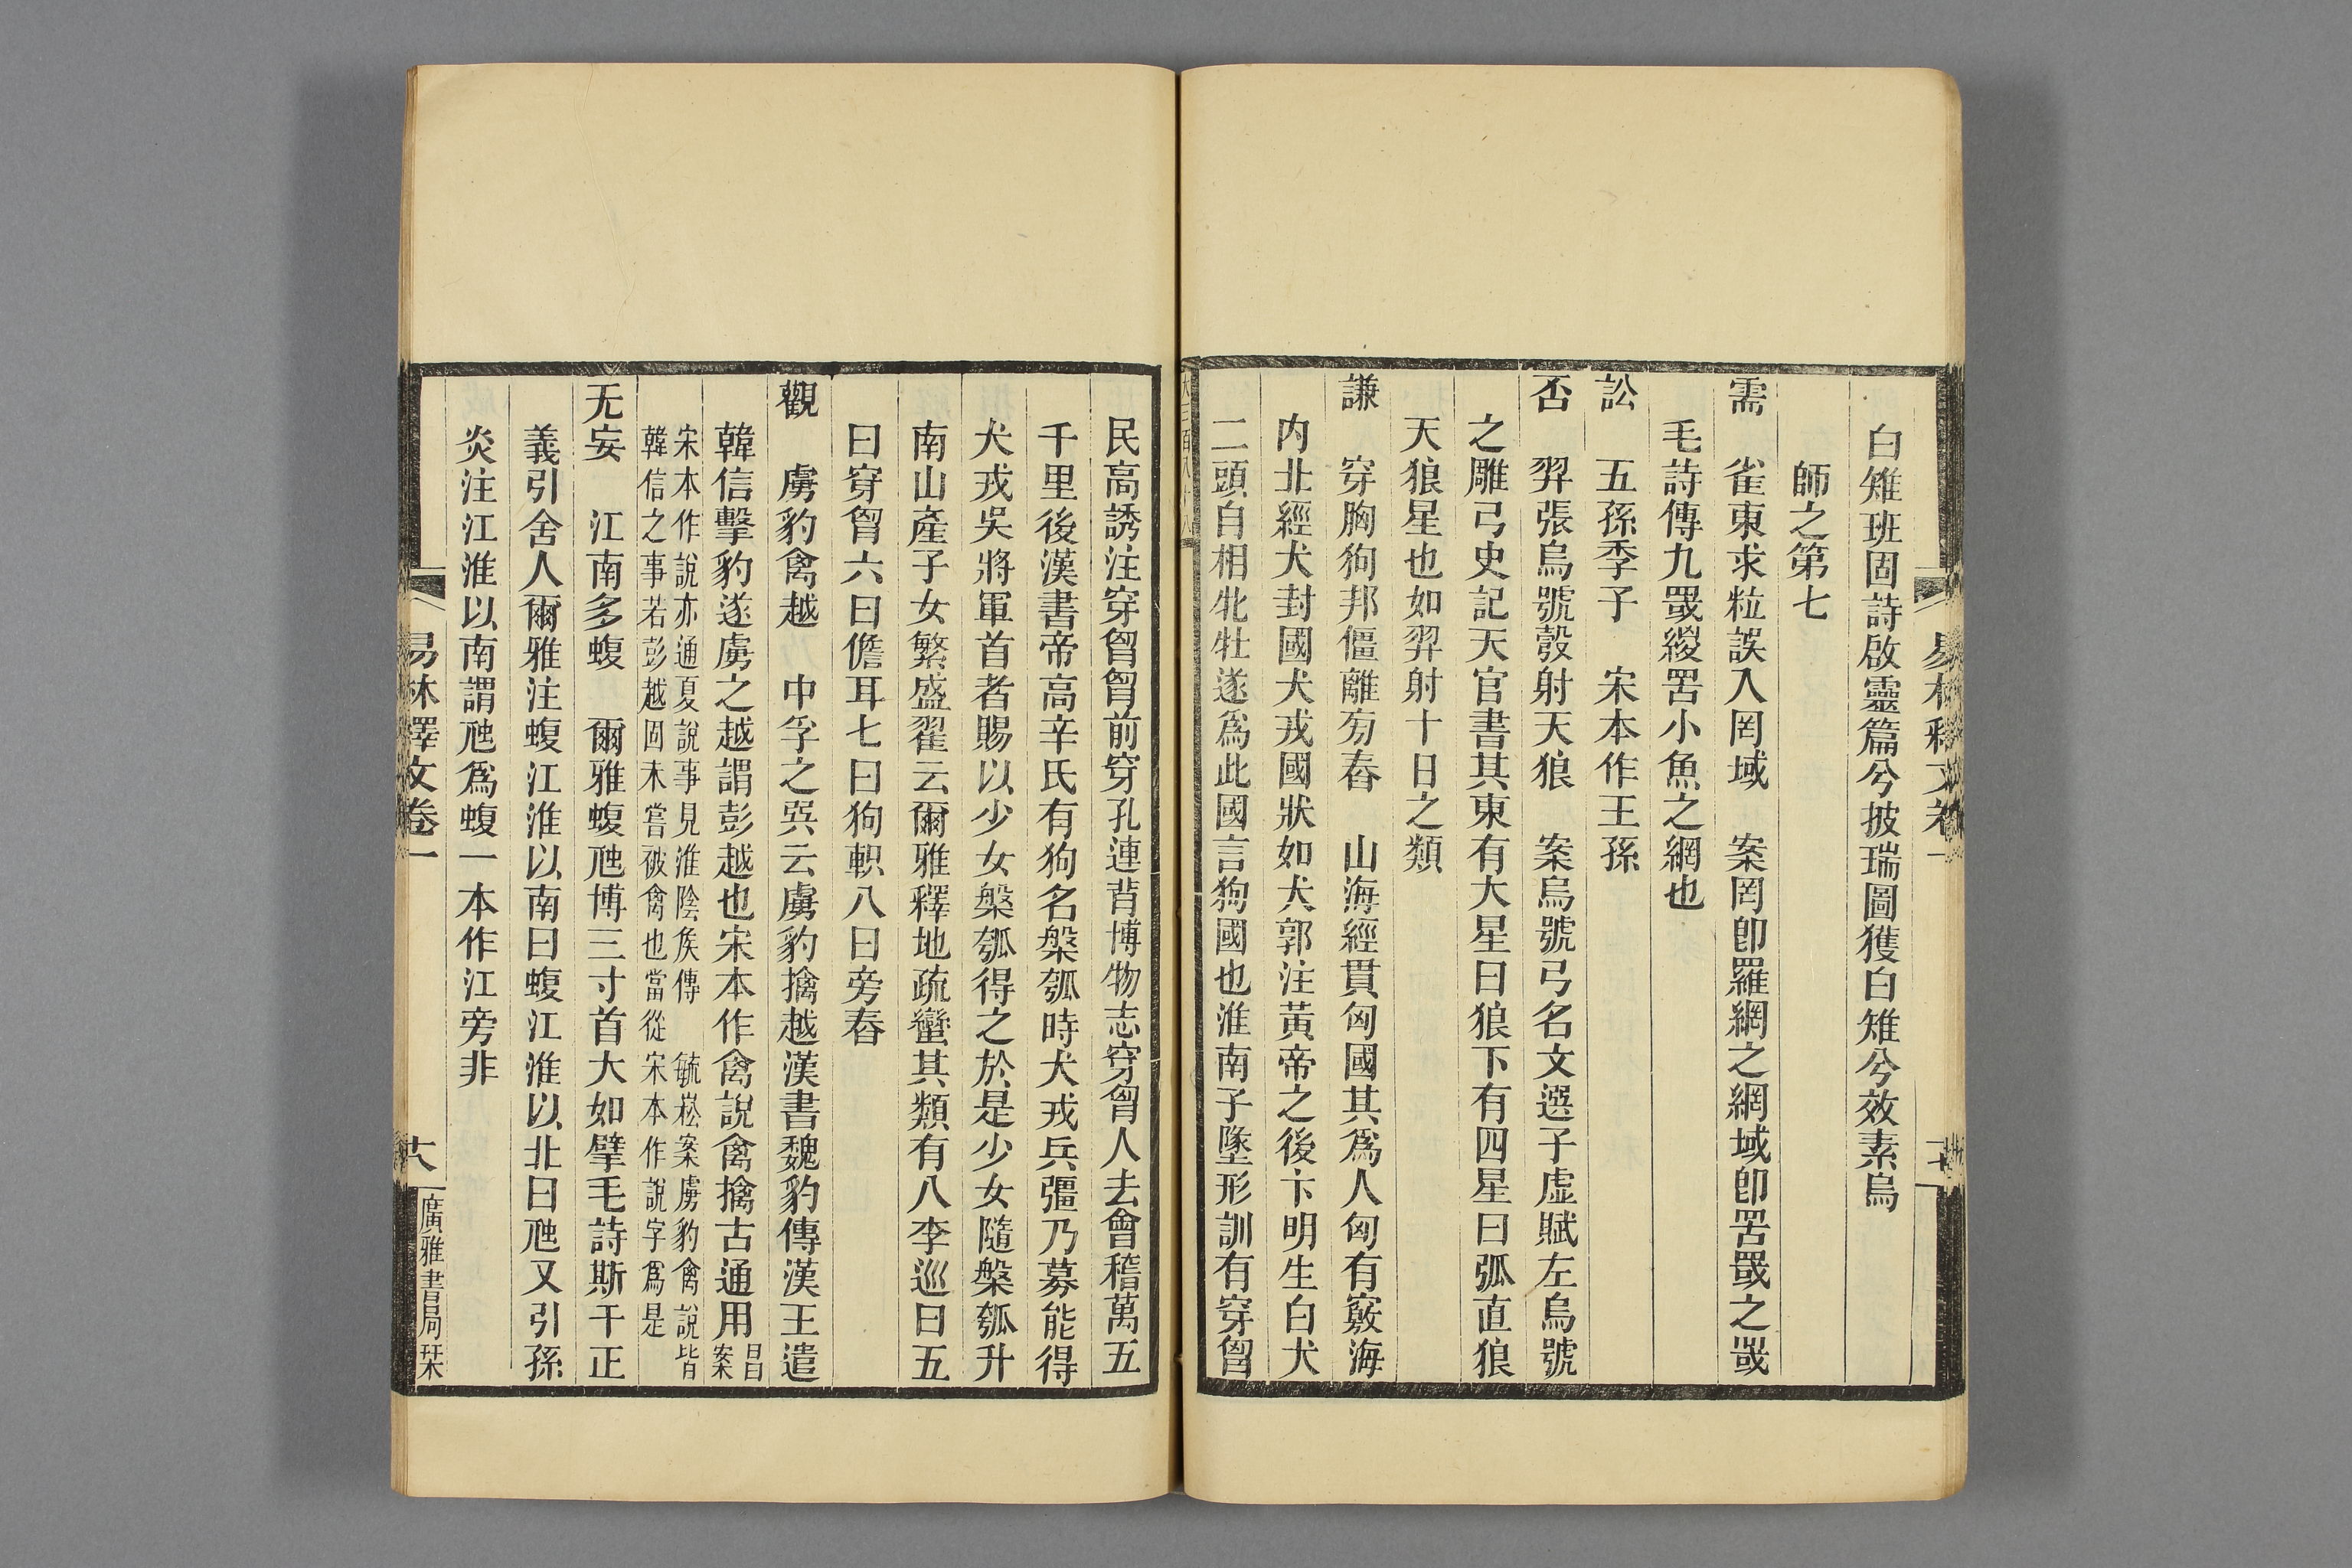 白雉班固詩啟靈篇兮披瑞圖獲白雉兮效素烏
師之第七
需　雀東求粒誤入罔域　案罔卽羅網之網域卽罟罭之罭
毛詩傳九罭緵罟小魚之網也
訟　五孫季子　宋本作王孫
否　羿張烏號彀射天狼　案烏號弓名文選子虛賦左烏號
之雕弓史記天官書其東有大星曰狼下有四星曰弧直狼
天狼星也如羿射十日之類
謙　穿胸狗邦僵離旁舂　山海經貫匈國其爲人匈有竅海
內北經犬封國犬戎國狀如犬郭注黃帝之後卞明生白犬
二頭自相牝牡遂爲此國言狗國也淮南子墜形訓有穿胷
民高誘注穿胷胷前穿孔連背博物志穿胷人去會稽萬五
千里後漢書帝高辛氏有狗名槃瓠時犬戎兵彊乃募能得
犬戎吳將軍首者賜以少女槃瓠得之於是少女隨槃瓠升
南山產子女繁盛翟云爾雅釋地疏蠻其類有八李巡曰五
曰穿胷六曰儋耳七曰狗軹八曰旁舂
觀　虜豹禽越　中孚之巽云虜豹擒越漢書魏豹傳漢王遣
韓信擊豹遂虜之越謂彭越也宋本作禽說禽擒古通用昌案
宋本作說亦通夏說事見淮陰侯傳　毓崧案虜豹禽說皆
韓信之事若彭越固未嘗被禽也當從宋本作說字爲是
无妄　江南多蝮　爾雅蝮虺博三寸首大如擘毛詩斯干正
義引舍人爾雅注蝮江淮以南曰蝮江淮以北曰虺又引孫
炎注江淮以南謂虺爲蝮一本作江旁非
易林釋文卷一
十八
廣雅書局栞